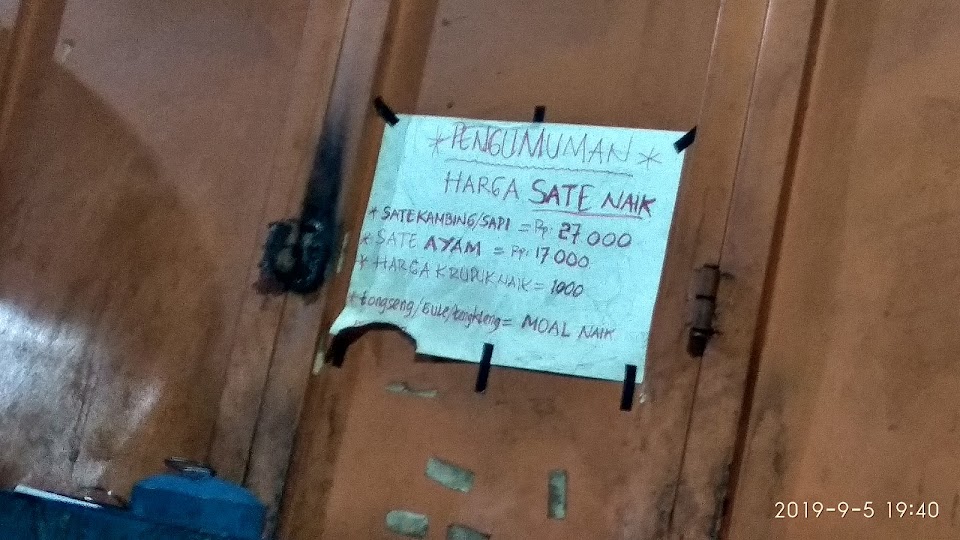 *PENGUMUMAN*
HARGA SATE NAIK
* SATE KAMBING/SAPI = Rp. 27 000
* SATE AYAM = Rp. 17 000
* HARGA KRUPUK NAIK = 1000
* tongseng/Gule/tengkleng = MOAL NAIK
2019-9-5 19:40